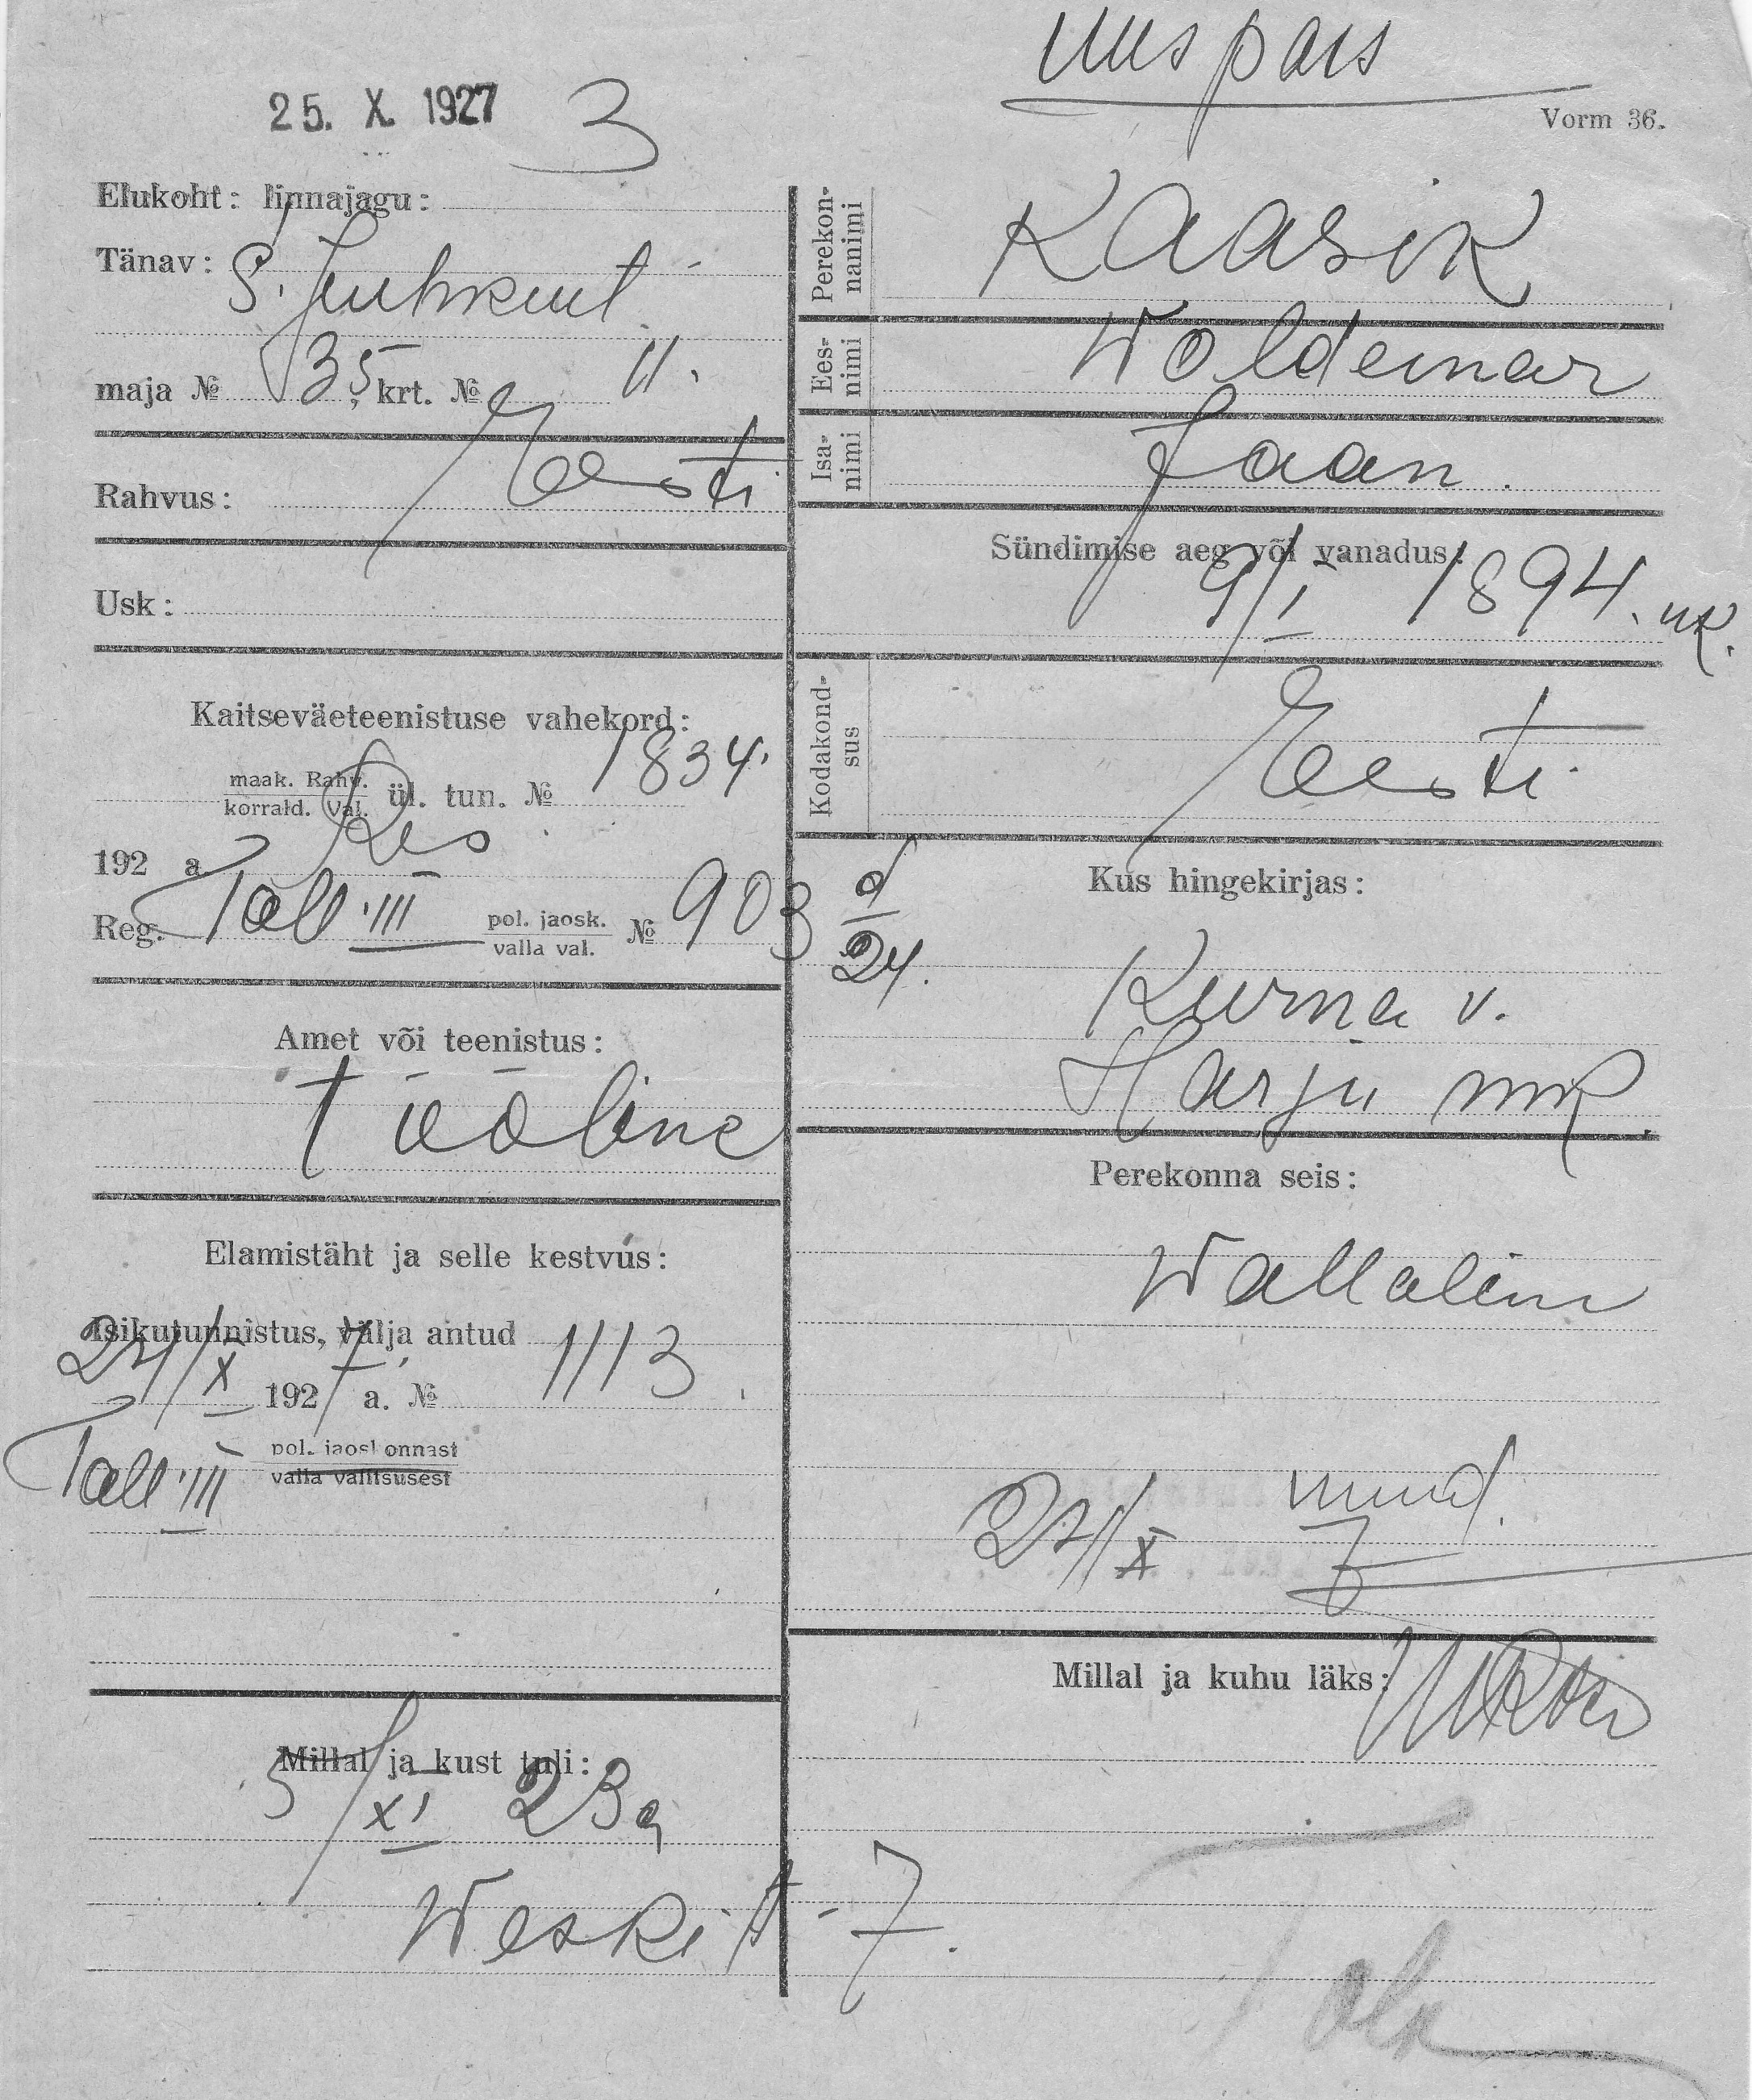 Uus pass
25. X. 1927 3
Vorm 36.
Elukoht: linnajagu:
Tänav: S. Juhkent
maja № 35 krt. № 11.
Rahvus: Eesti
Usk:
Kaitseväeteenistuse vahekord:
maak. Rahv. ül. tun. № 1834.
korrald. Val.
Res
192 a
Reg. Tall. III pol. jaosk. № 903
valla val.
24.
Amet või teenistus:
tööline
Elamistäht ja selle kestvus:
Isikutunnistus, välja antud 1113
24/X 1927 a. №
Tall. III pol. jaoskonnast
valla valitsusest
Millal ja kust tuli:
5/XI 23 a
Weski t - 7.
Perekonnanimi Kaasik
Eesnimi Woldemar
Isanimi Jaan.
Sündimise aeg või vanadus:
9/I 1894. uk.
Kodakondsus Eesti
Kus hingekirjas:
Kurna v.
Harju mk.
Perekonna seis:
Wallaline
24/X 7
Millal ja kuhu läks: